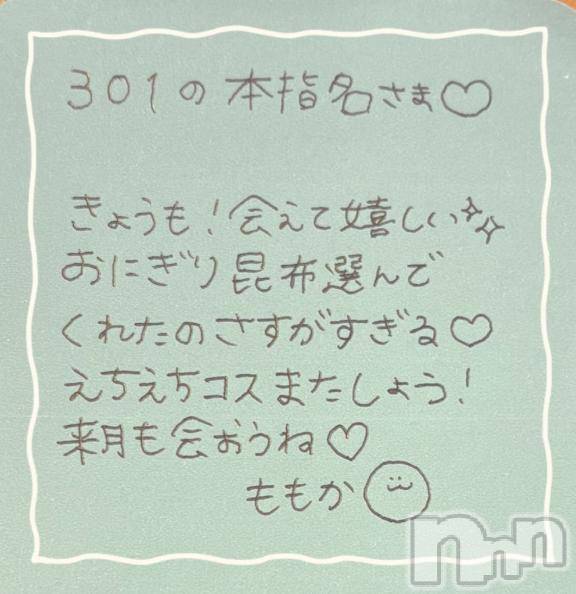 301の本指名さま♡
きょうも！会えて嬉しい✨
おにぎり昆布選んで
くれたのさすがすぎる♡
えちえちコスまたしよう！
来月も会おうね♡
ももか
nnn